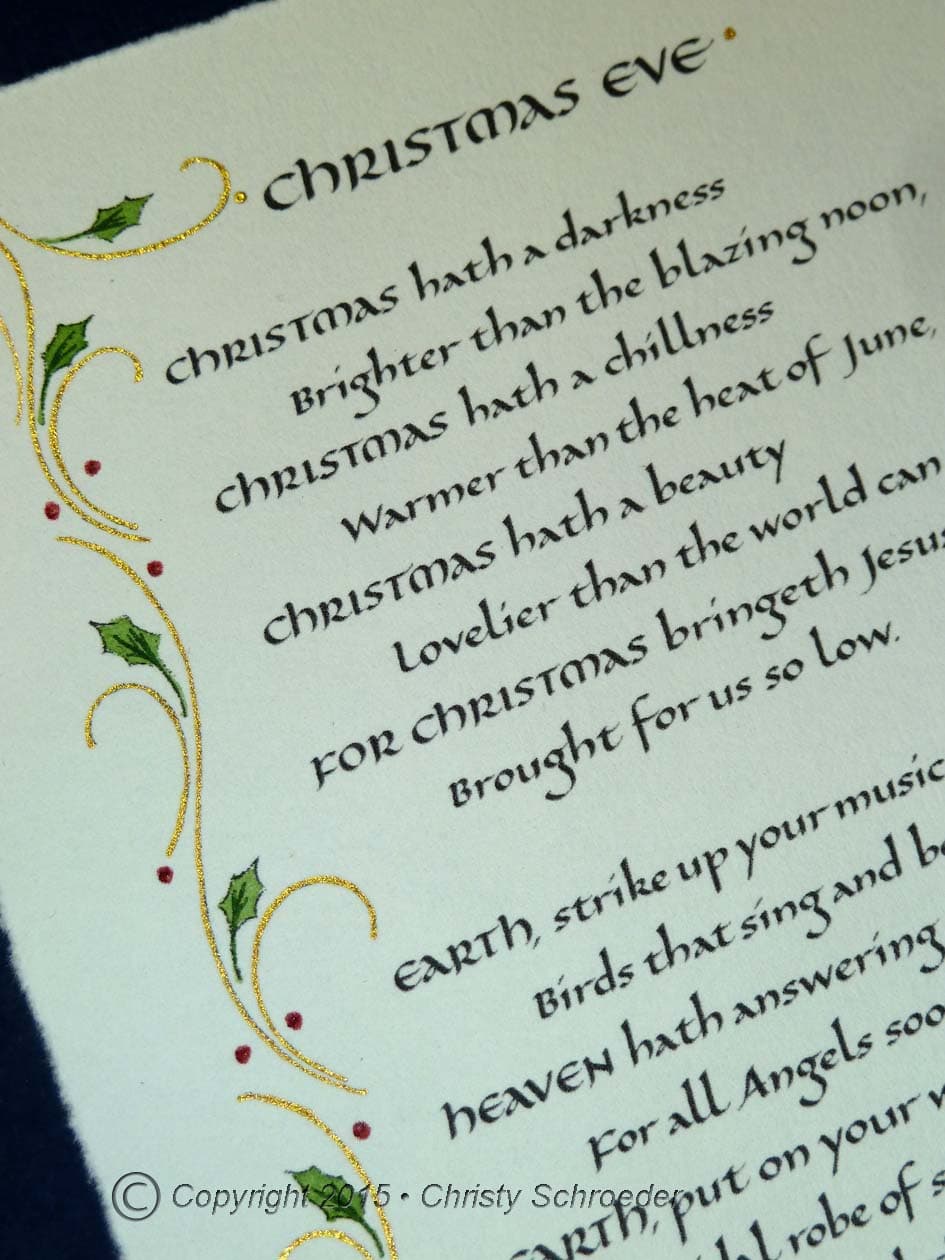 CHRISTMAS EVE
CHRISTMAS hath a darkness
Brighter than the blazing noon,
CHRISTMAS hath a chillness
Warmer than the heat of June,
CHRISTMAS hath a beauty
Lovelier than the world can
FOR CHRISTMAS bringeth Jesus
Brought for us so low.
EARTH, strike up your music
Birds that sing and
HEAVEN hath answering
For all Angels
EARTH, put on your
robe of
© Copyright 2015 • Christy Schroeder